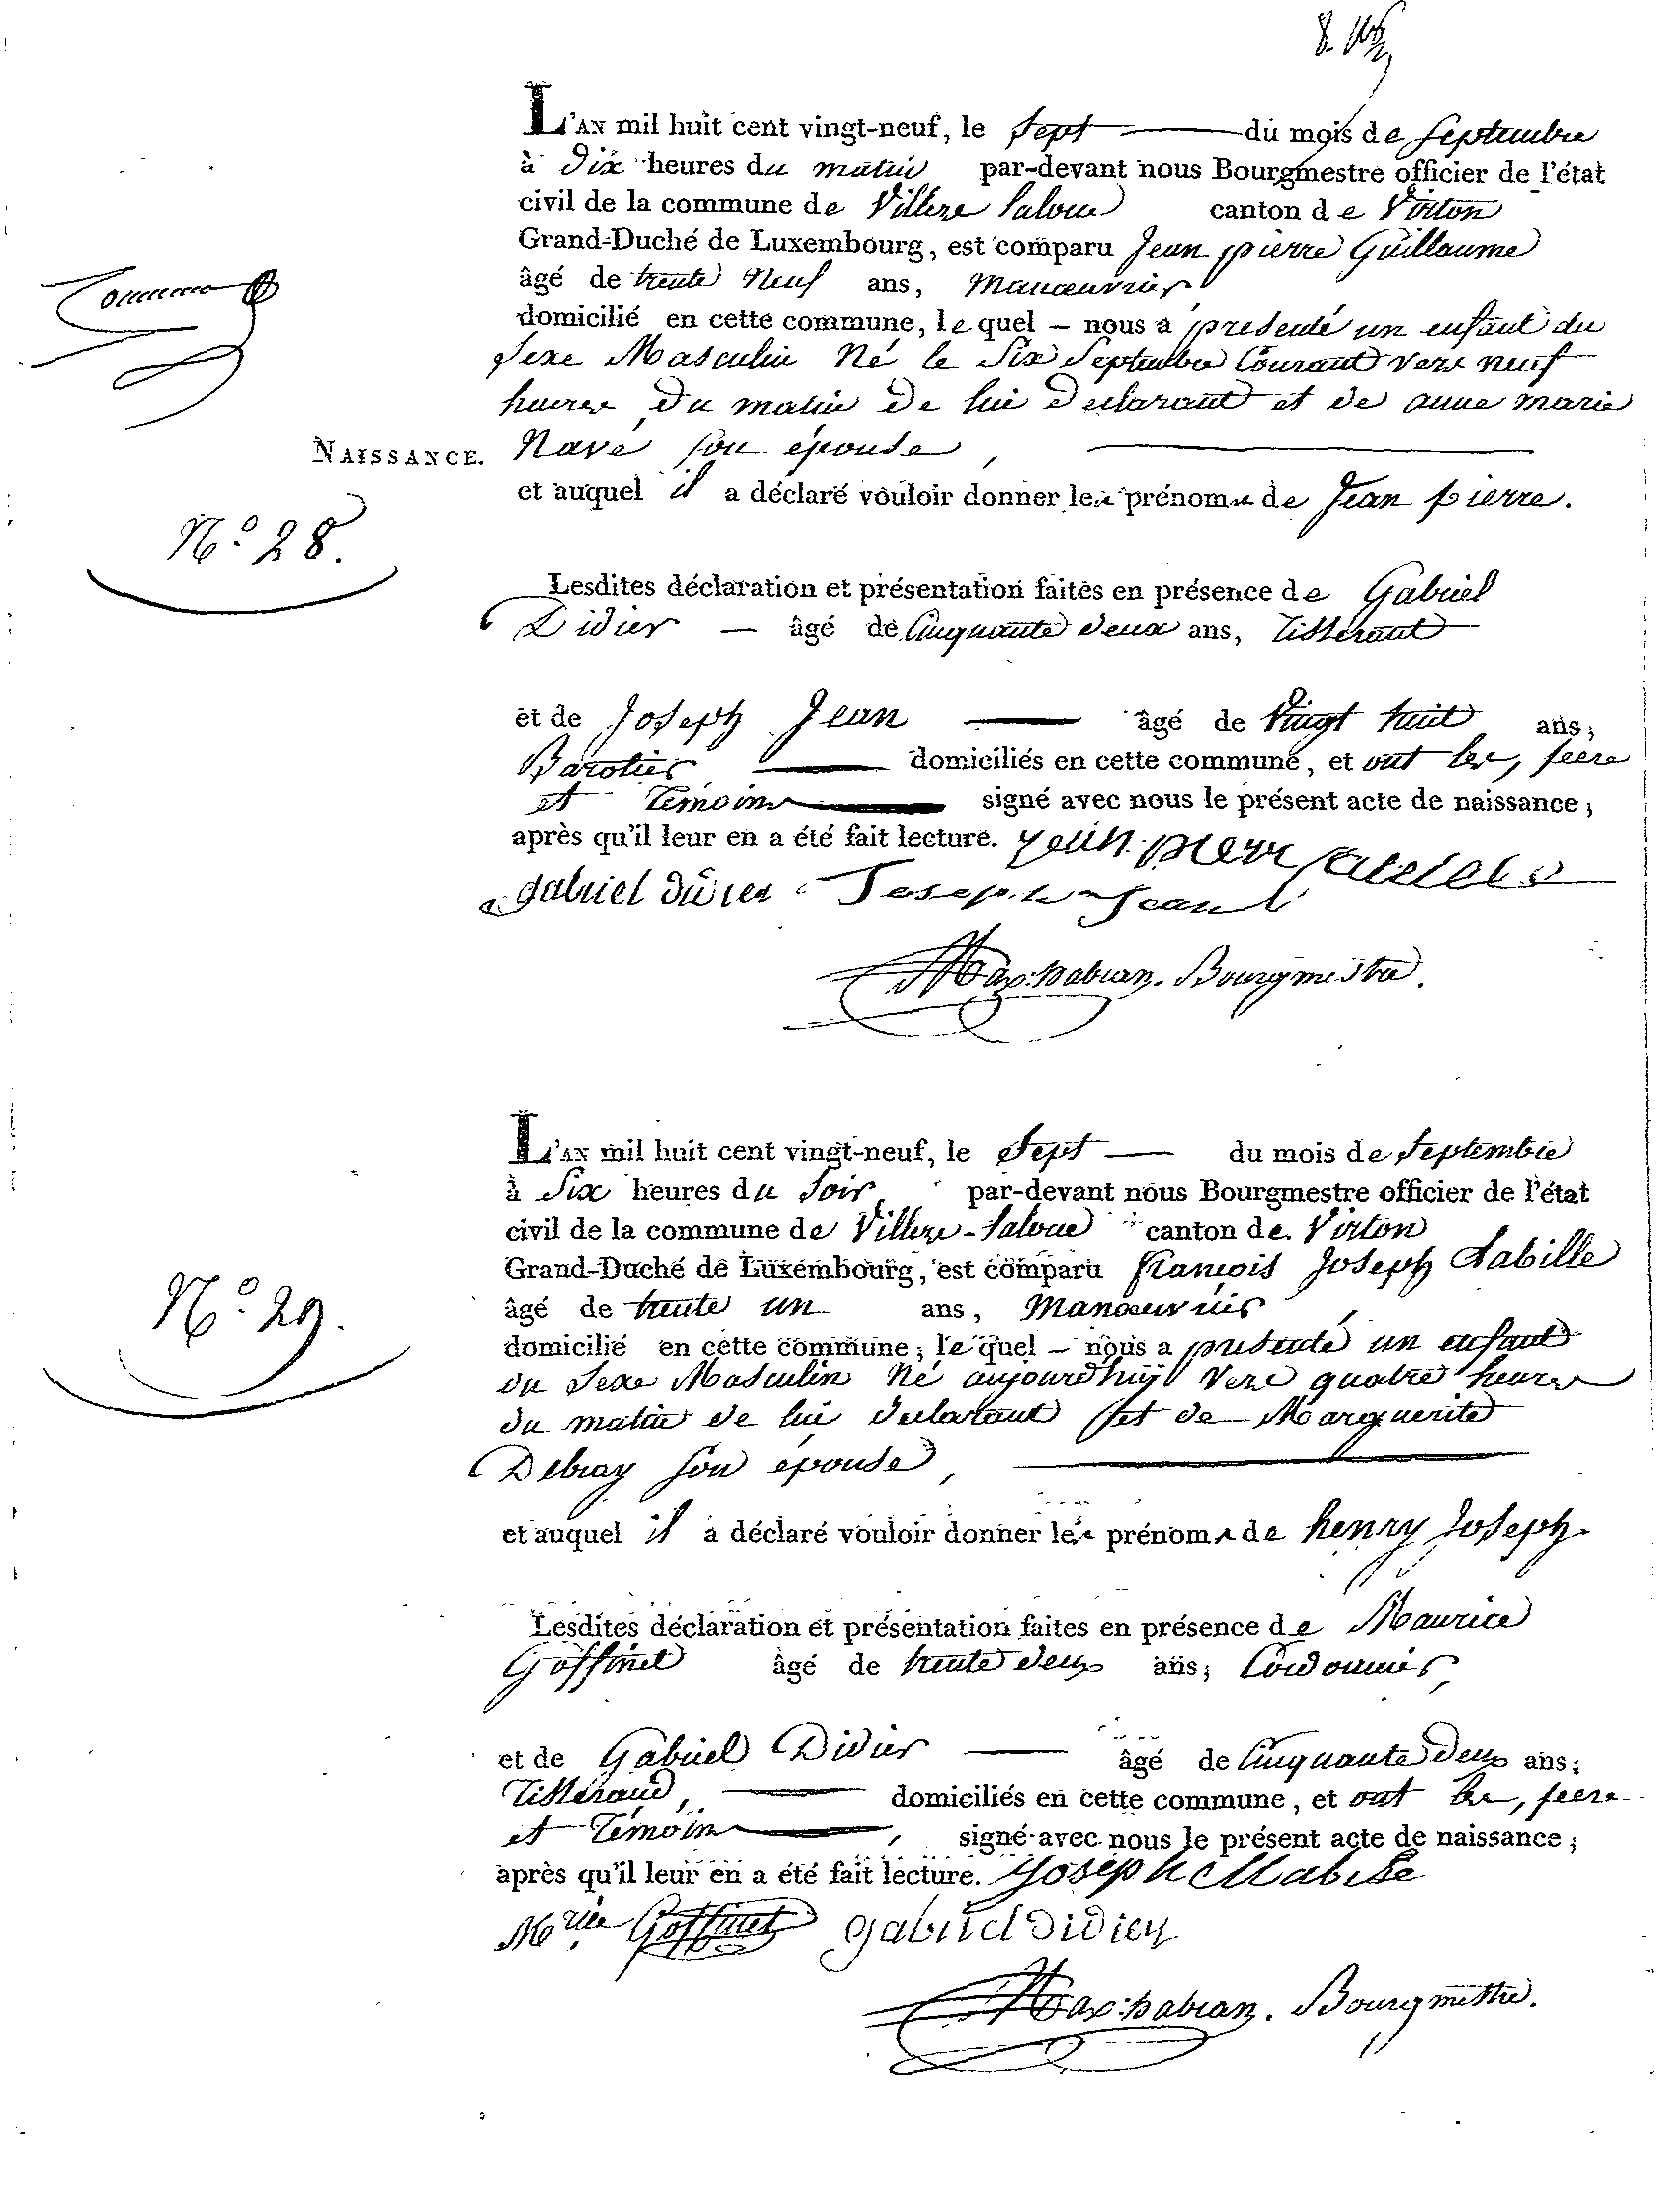 L'AN mil huit cent vingt-neuf, le Sept du mois de Septembre
à Dix heures du matin par-devant nous Bourgmestre officier de l'état
civil de la commune de Villers Laloue canton de Virton
Grand-Duché de Luxembourg, est comparu Jean pierre Guillaume
âgé de trente Neuf ans, Manœuvrier,
domicilié en cette commune, lequel – nous a presenté un enfant du
Sexe Masculin Né le Six Septembre Courant vers neuf
heures du matin de lui Declarant et de anne marie
NAISSANCE. Navé son épouse,
et auquel il a déclaré vouloir donner les prénoms de Jean pierre.
N.o 28.
Lesdites déclaration et présentation faites en présence de Gabriel
Didier — âgé de Cinquante deux ans, Tisserant
et de Joseph Jean — âgé de Vingt huit ans;
domiciliés en cette commune, et ont les, peere
et Témoins signé avec nous le présent acte de naissance;
après qu'il leur en a été fait lecture.
gabriel didier Joseph Jean
Bourgmestre.
L'AN mil huit cent vingt-neuf, le Sept — du mois de Septembre
à Six heures du Soir, par-devant nous Bourgmestre officier de l'état
civil de la commune de Villers-Laloue canton de Virton
Grand-Duché de Luxembourg, est comparu françois Joseph Labille
âgé de trente un ans, Manœuvrier,
domicilié en cette commune; lequel – nous a presenté un enfant
du Sexe Masculin Né aujourdhuÿ Vers quatre heures
du matin de lui declarant et de Marguerite
Debray son épouse,
et auquel il a déclaré vouloir donner les prénoms de henry Joseph.
N.o 29.
Lesdites déclaration et présentation faites en présence de Maurice
Goffinet âgé de trente deux ans; Cordonnier,
et de Gabriel Didier — âgé de Cinquante Deux ans;
Tisserand, — domiciliés en cette commune, et ont les, peere
et Témoins, signé avec nous le présent acte de naissance;
après qu'il leur en a été fait lecture. Joseph Labille
M rice Goffinet gabriel didier
Bourgmestre.